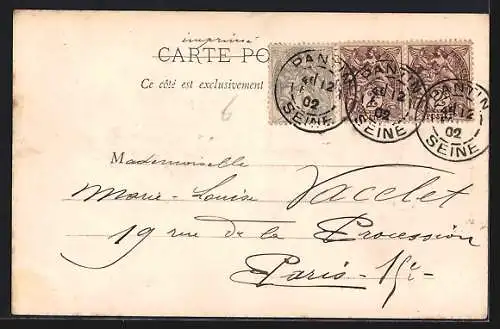 imprimé
CARTE PO
Ce côté est exclusivement
PANTIN
12
02
SEINE
PANTIN
12
02
SEINE
PANTIN
12
02
SEINE
6
Mademoiselle
Marie-Louise Vacclet
19 rue de la Procession
Paris - 15e -